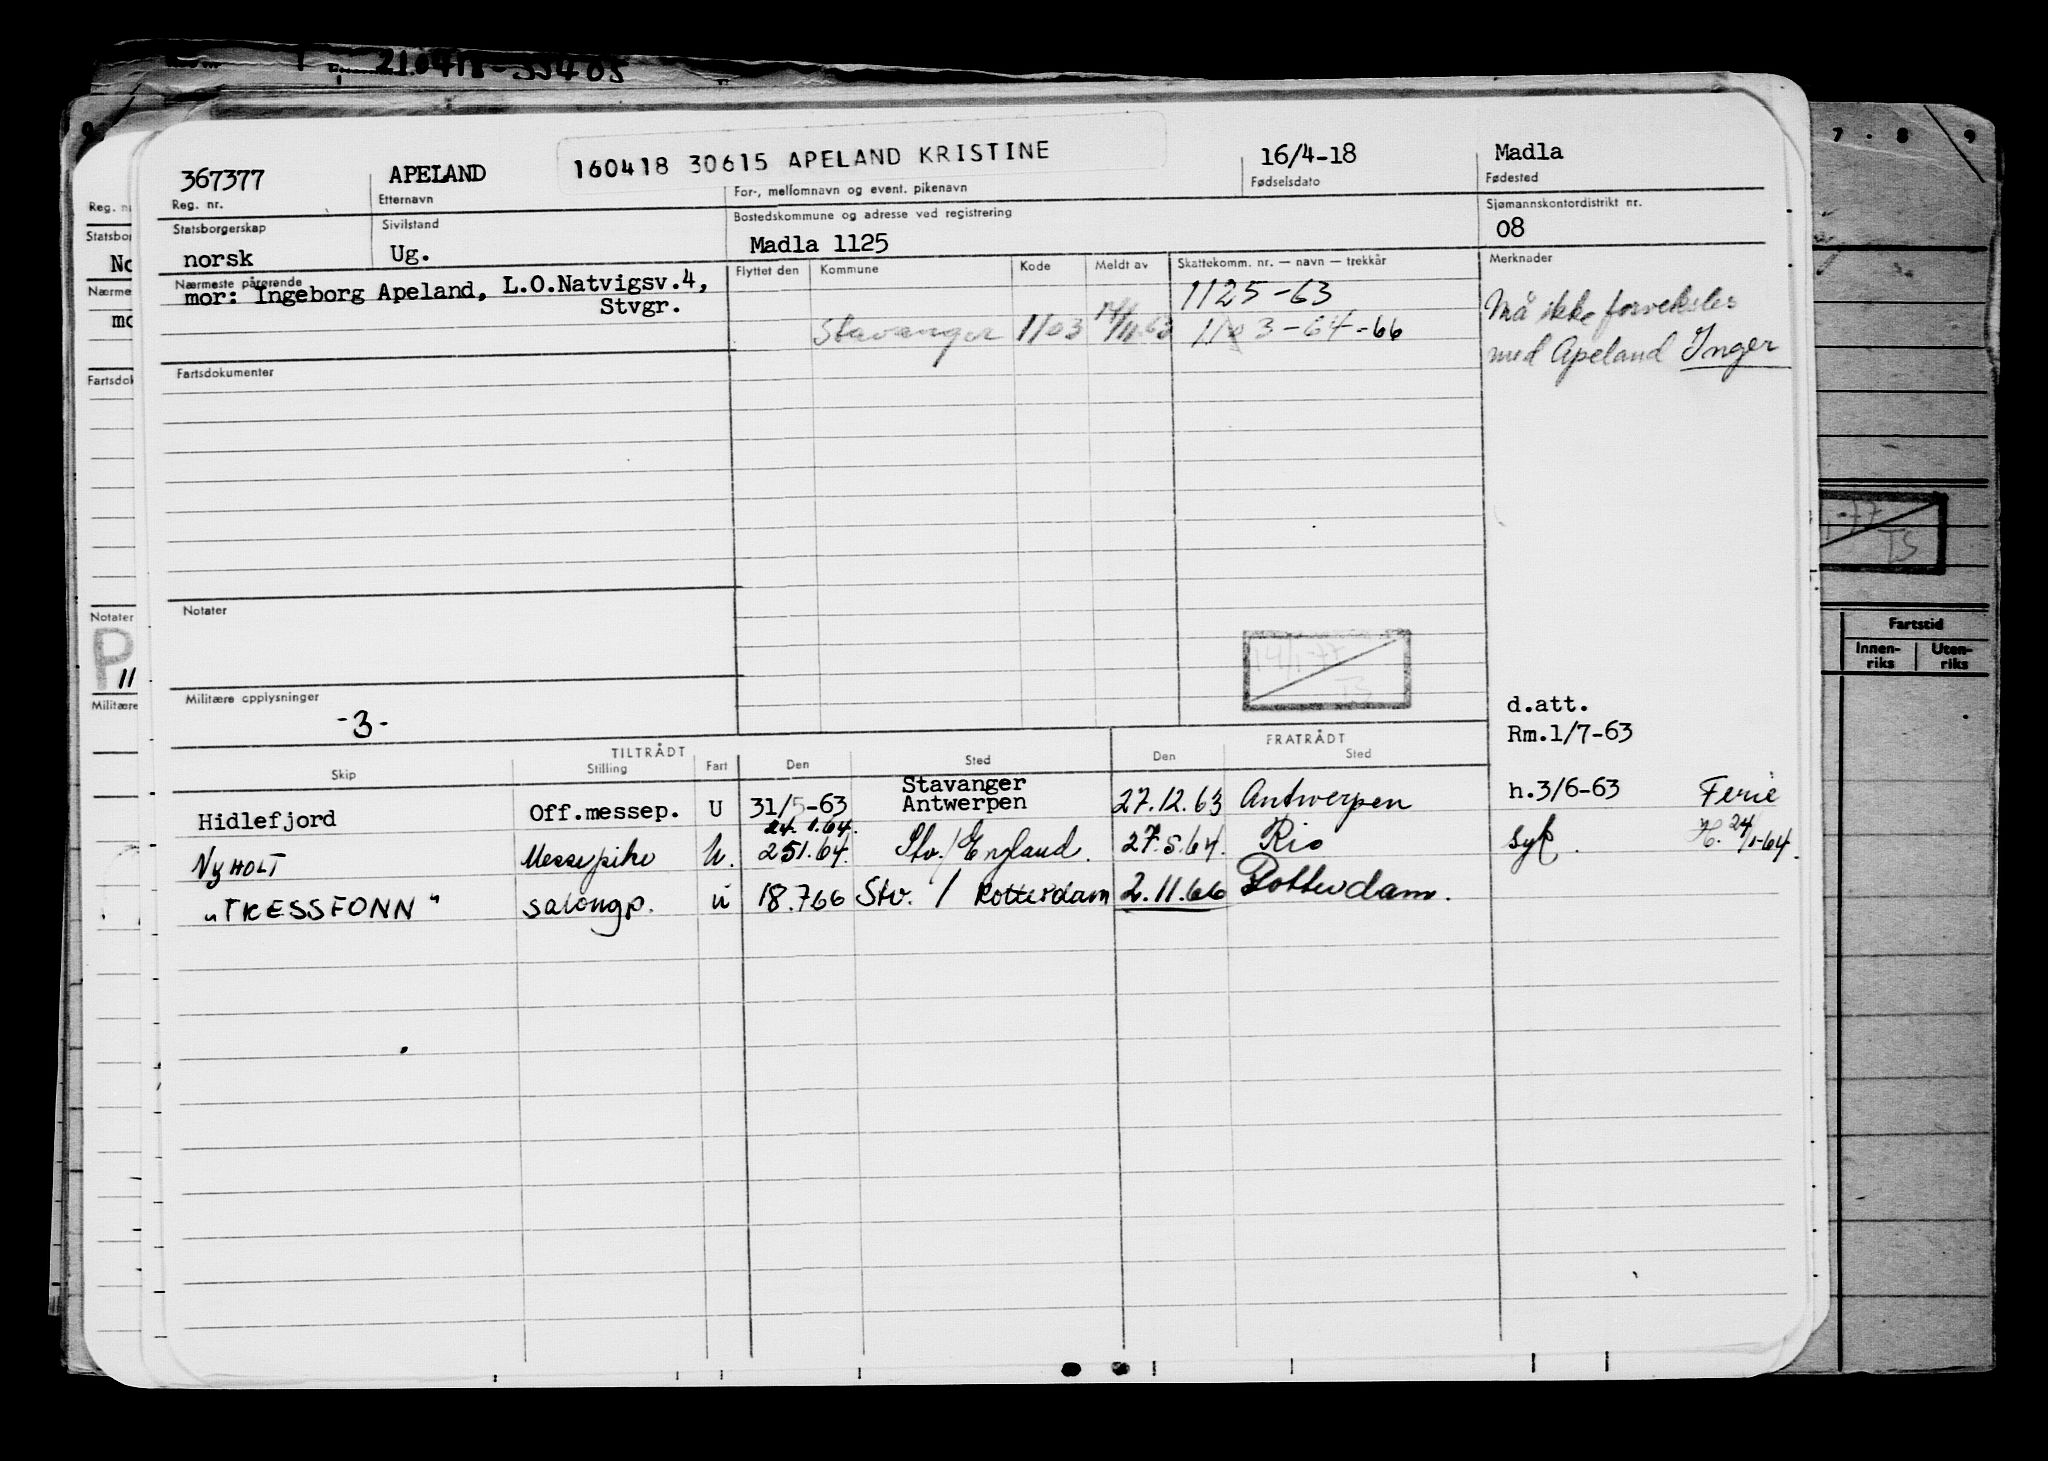 210418-33405
7 · 8 9
367377 APELAND 160418 30615 APELAND KRISTINE 16/4-18 Madla
Reg. nr. Etternavn For-, mellomnavn og event. pikenavn Fødselsdato Fødested
Statsborgerskap Sivilstand Bostedskommune og adresse ved registrering Sjømannskontordistrikt nr.
norsk Ug. Madla 1125 08
Nærmeste pårørende Flyttet den Kommune Kode Meldt av Skattekomm. nr. — navn — trekkår Merknader
mor: Ingeborg Apeland, L.O.Natvigsv.4, 1125-63 Må ikke forveksles
Stvgr.
Stavanger 1103 1103-64-66 med Apeland Inger
Fartsdokumenter
Notater
Militære opplysninger
-3-
d.att.
Rm.1/7-63
TILTRÅDT FRATRÅDT
Skip Stilling Fart Den Sted Den Sted
Stavanger
Hidlefjord Off.messep. U 31/5-63 Antwerpen 27.12.63 Antwerpen h.3/6-63 Ferie
24.1.64.
NyHOLT Messepike U. 251.64. Stv./England. 27.5.64. Rio Syk. H.24/1-64.
"TRESSFONN" salongp. u 18.766 Stv. / Rotterdam 2.11.66 Rotterdam.
Reg. n
Statsbor
No
Nærme
mo
Fartsdok
Notater
P
11
Militære
-77
TS
Fartstid
Innen-riks Uten-riks